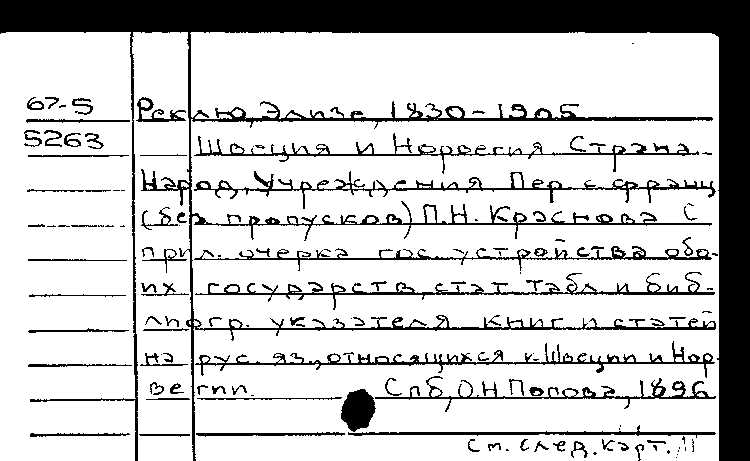 67-5 Реклю, Элизе, 1830-1905
5263 Швеция и Норвегия Страна
Народ, Учреждения Пер. с франц
(без пропусков) П.Н. Краснова С
прил. очерка гос. устройства обо-
их государств, стат табл и биб-
лиогр. указателя книг и статей
на рус. яз., относящихся к Швеции и Нор-
вегии. Спб, О.Н Попова, 1896
См. след. карт.